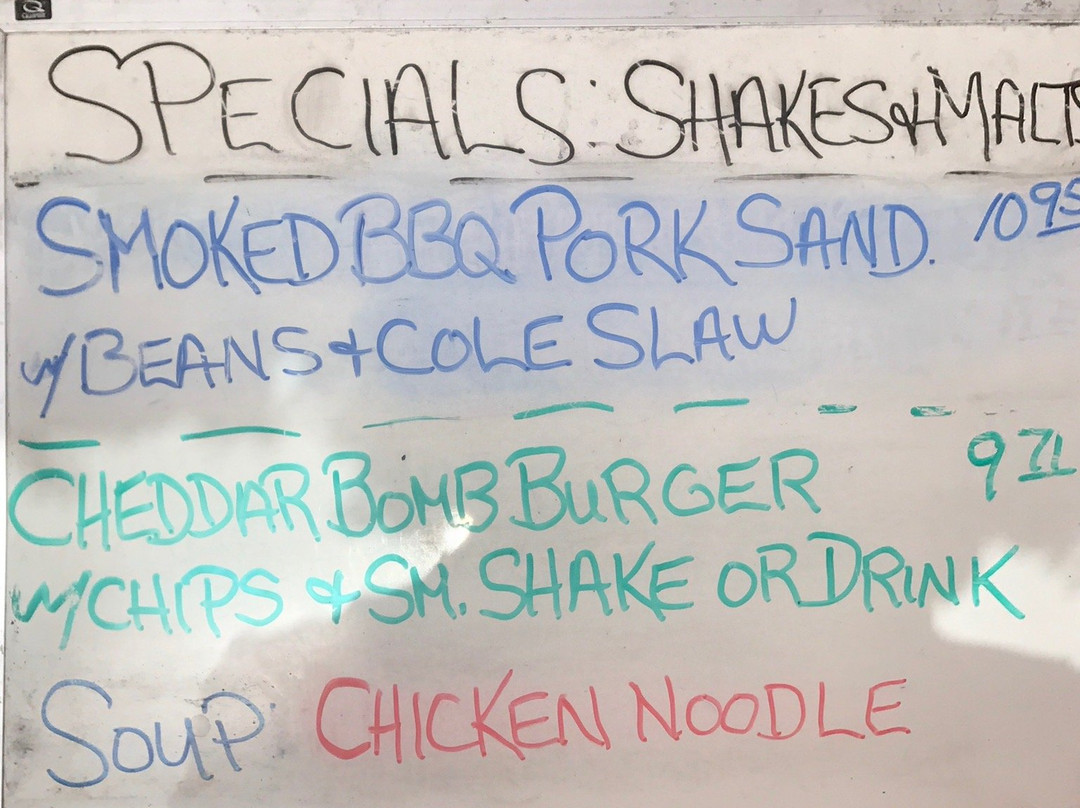 SPECIALS: SHAKES & MALTS
SMOKED BBQ PORK SAND. 10 95
w/ BEANS & COLE SLAW
CHEDDAR BOMB BURGER
w/ CHIPS & SM. SHAKE OR DRINK
SOUP: CHICKEN NOODLE